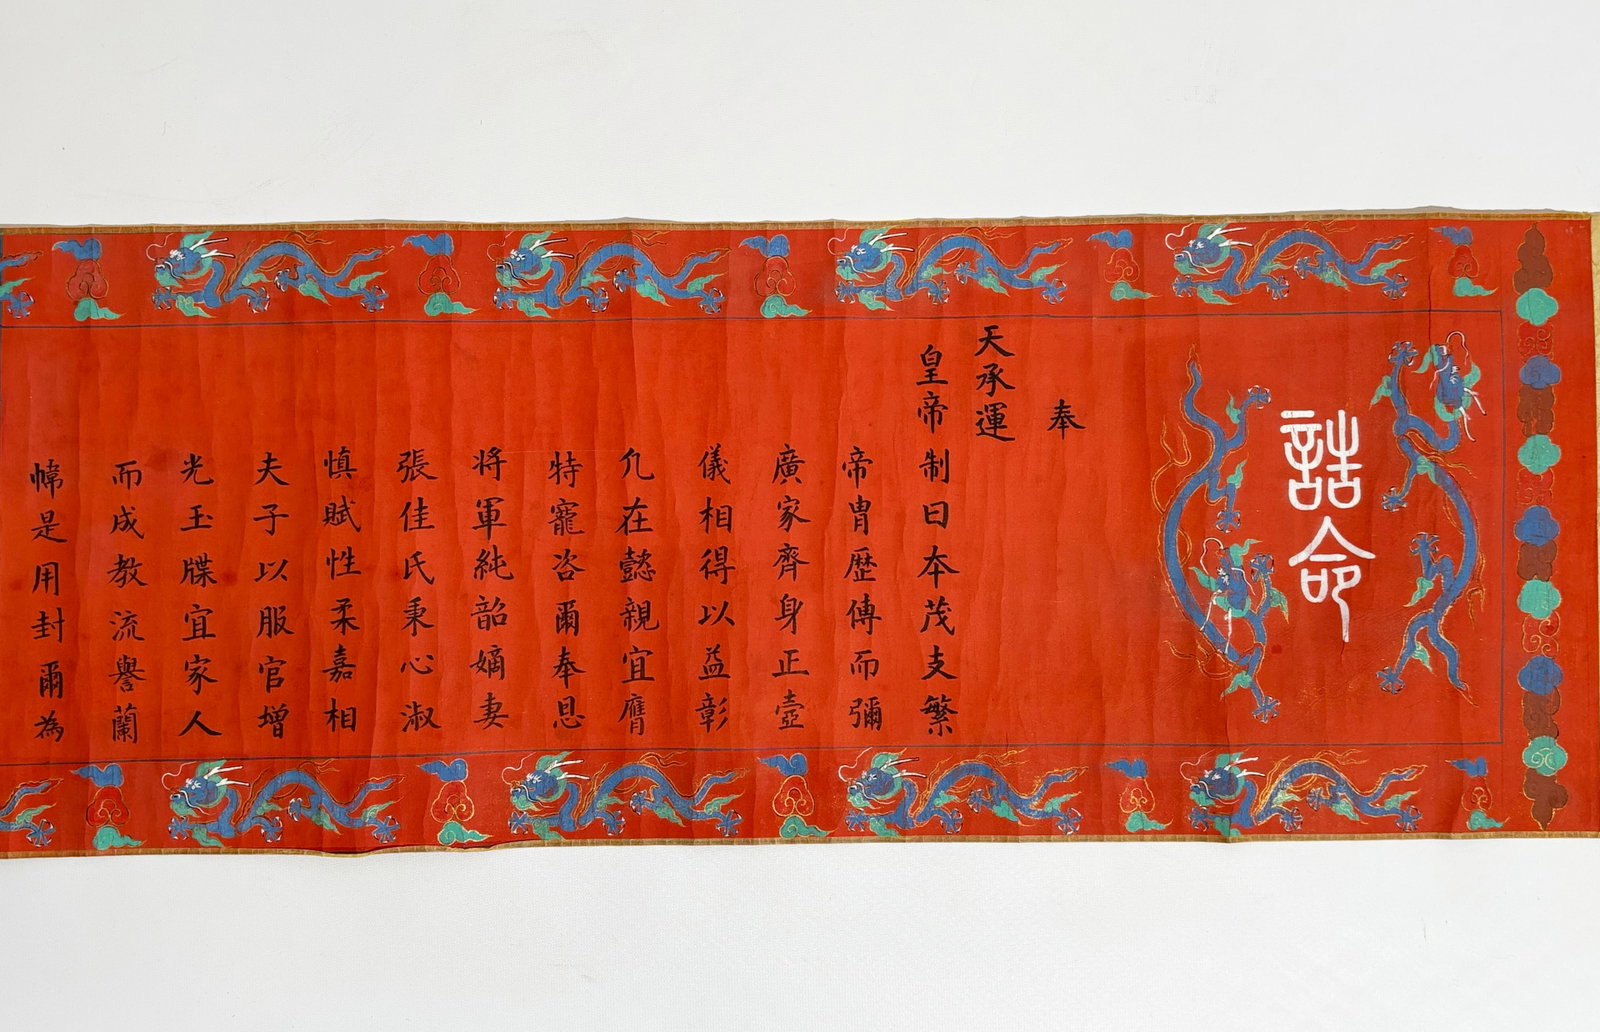 誥命
奉
天承運
皇帝制曰本茂支繁
帝胄歷傳而彌
廣家齊身正壼
儀相得以益彰
凢在懿親宜膺
特寵咨爾奉恩
將軍純韶嫡妻
張佳氏秉心淑
慎賦性柔嘉相
夫子以服官增
光玉牒宜家人
而成教流譽蘭
幃是用封爾為